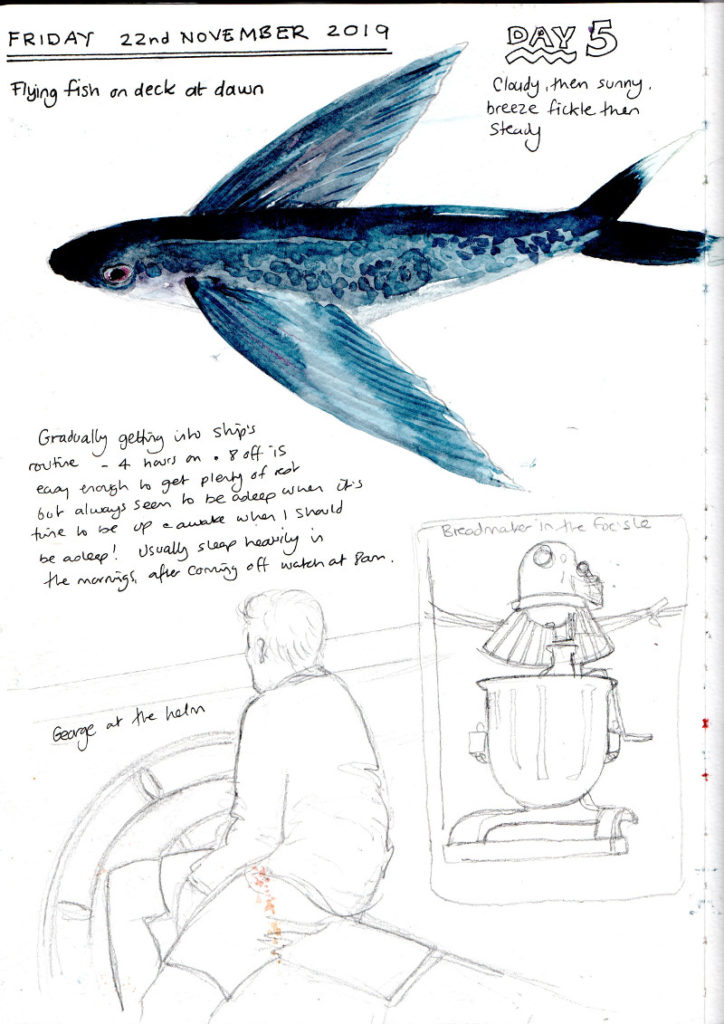 FRIDAY 22nd NOVEMBER 2019
DAY 5
Flying fish on deck at dawn
Cloudy, then sunny.
breeze fickle then
steady
Gradually getting into ship's
routine - 4 hours on . 8 off is
easy enough to get plenty of rest
but always seem to be asleep when it's
time to be up & awake when I should
be asleep! Usually sleep heavily in
the mornings, after coming off watch at 8am.
Breadmaker in the foc'sle
George at the helm